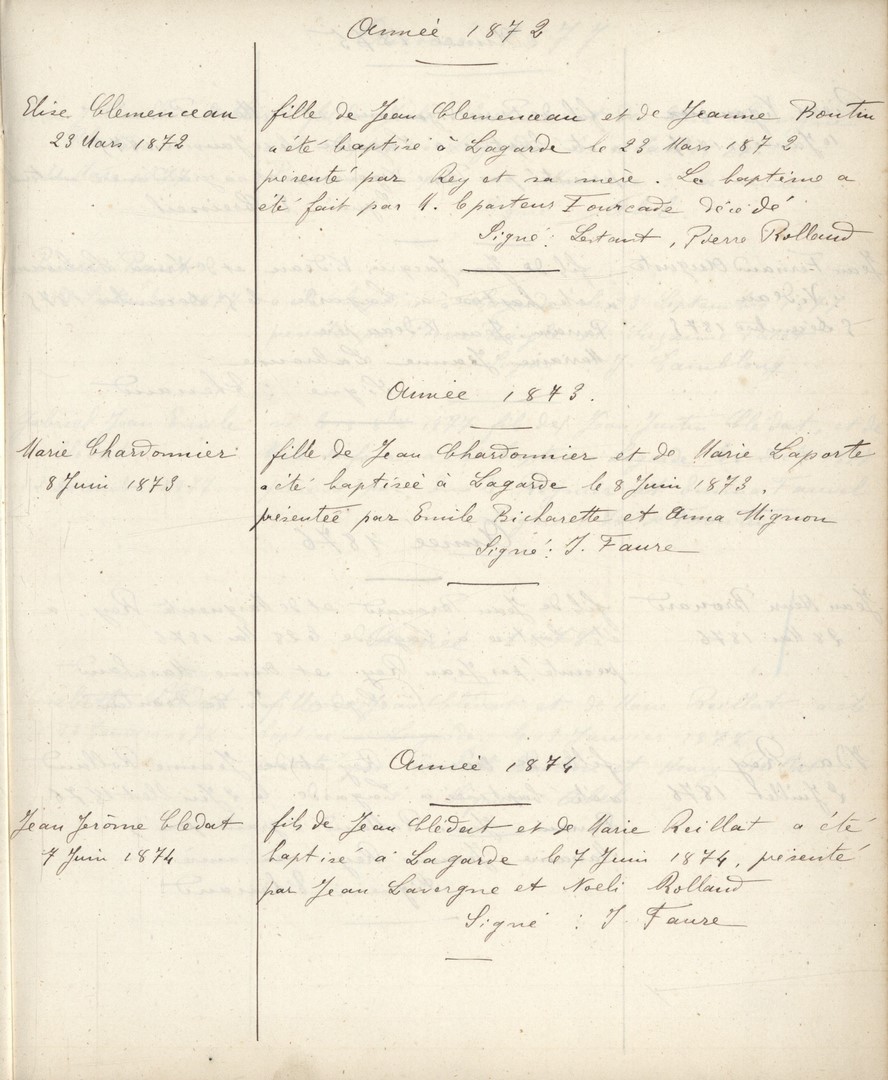 Année 1872
Elise Clemenceau
23 Mars 1872
fille de Jean Clemenceau et de Jeanne Boutin
a été baptisé à Lagarde le 23 Mars 1872
présenté par Rey et sa mère. Le baptême a
été fait par M. Fourcade décédé
Signé: Lestant, Pierre Rolland
Année 1873.
Marie Chardonnier
8 Juin 1873
fille de Jean Chardonnier et de Marie Laporte
a été baptiséé à Lagarde le 8 Juin 1873,
présentéé par Emile Bicharette et Anna Mignon
Signé: J. Faure
Année 1874
Jean Jérôme Clédat
7 Juin 1874
fils de Jean Clédat et de Marie Reillat a été
baptisé à Lagarde le 7 Juin 1874, présenté
par Jean Lavergne et Noéli Rolland
Signé: J Faure